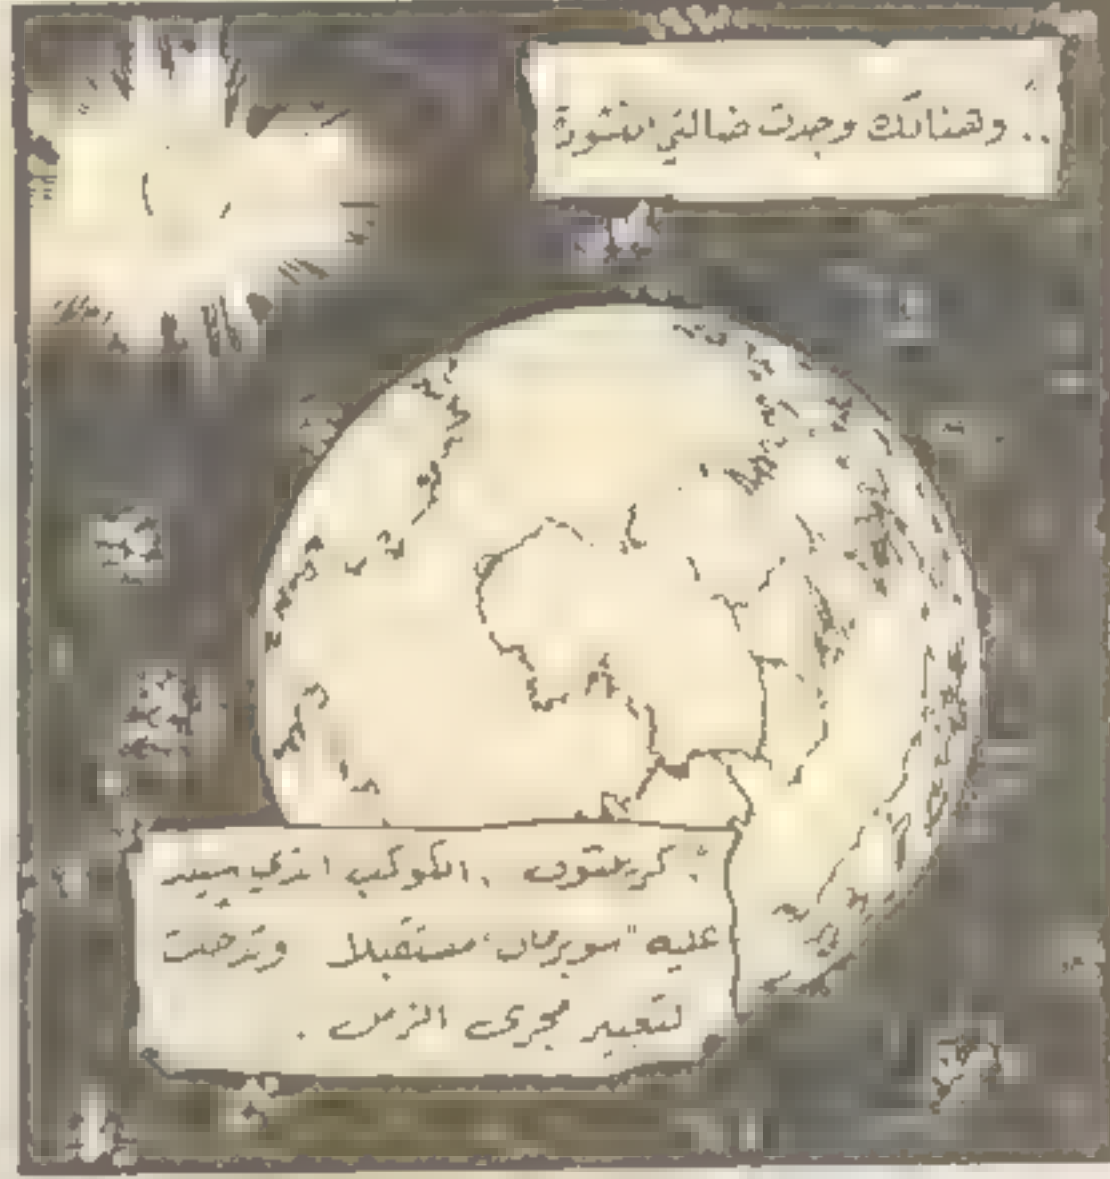 .. وهنالك وجدت ضالتي المنشودة
: كريبتون . الكوكب الذي سيولد
عليه "سوبرمان" مستقبلا وتدخلت
لتغيير مجرى الزمن .